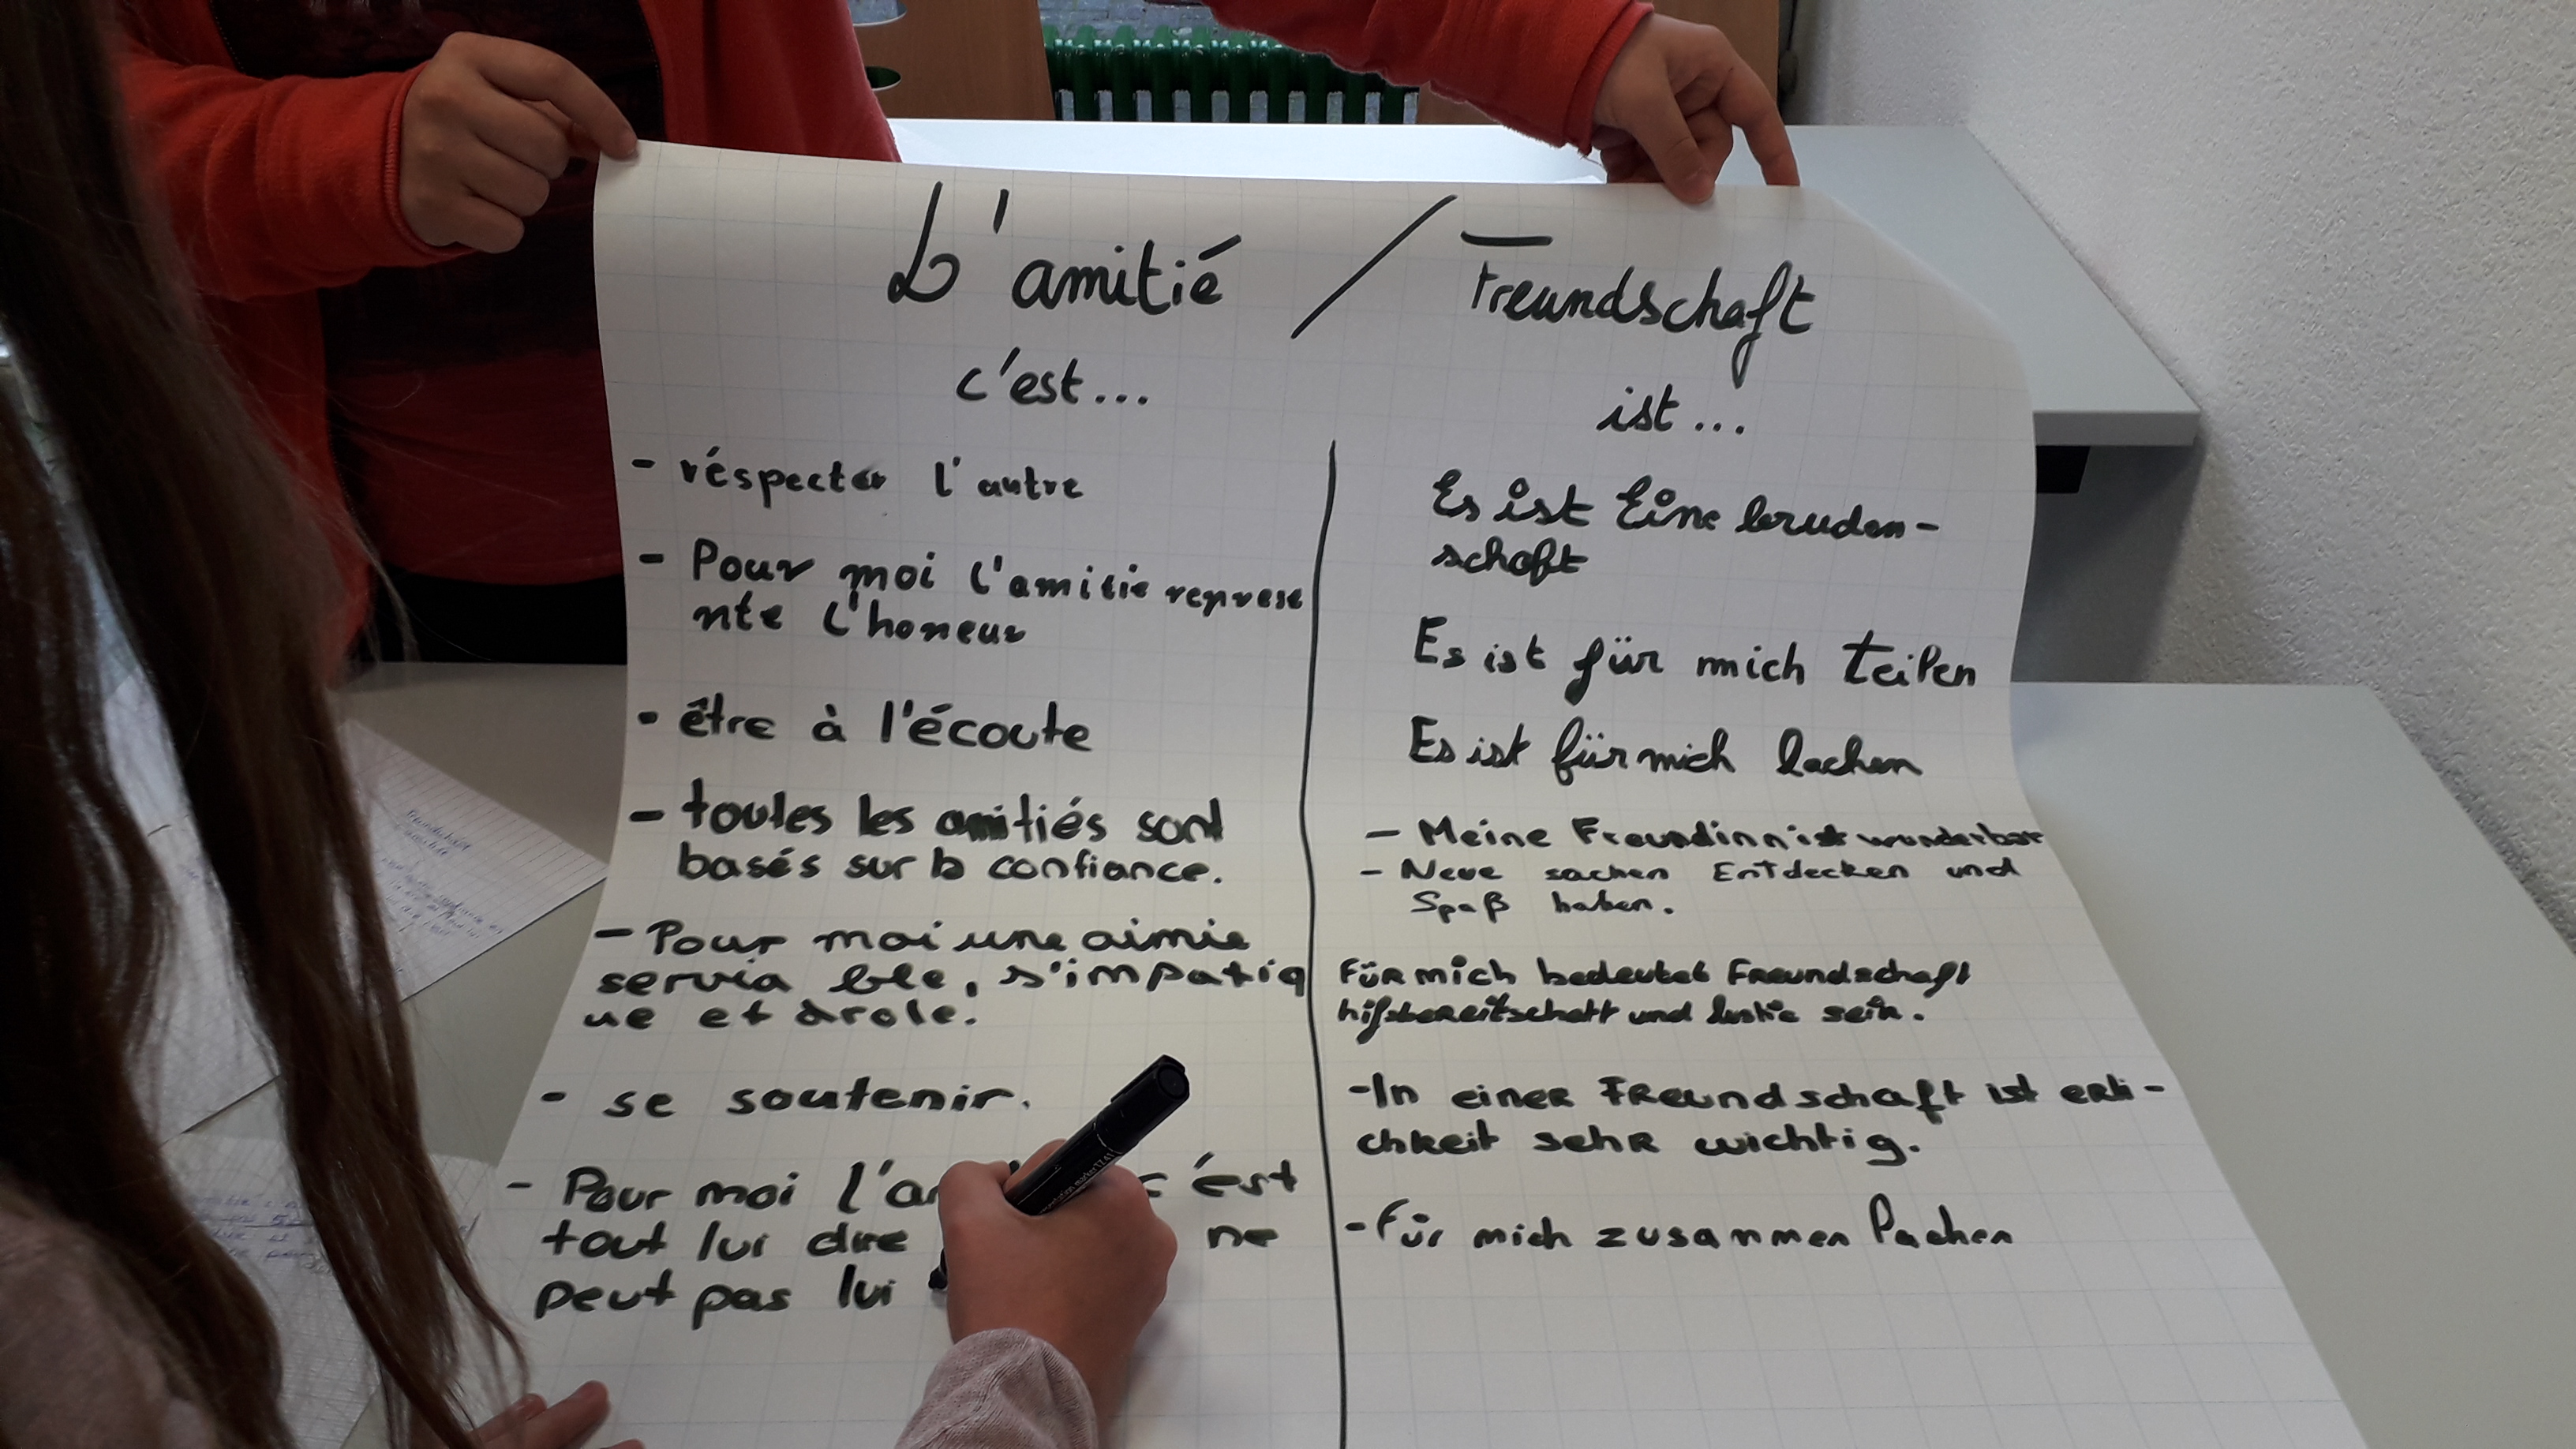 L'amitié / Freundschaft
c'est...
ist...
- réspecter l'autre
- Pour moi l'amitie represe
nte l'honeur
- être à l'écoute
- toutes les amitiés sont
basés sur la confiance.
- Pour moi une aimie
servia ble, s'impatiq
ue et drole.
- se soutenir.
- Pour moi l'a c'est
tout lui dire ne
peut pas lui
Es ist Eine bruden-
schaft
Es ist für mich Teilen
Es ist für mich lachen
- Meine Freundinn ist wunderbar
- Neue sachen Entdecken und
Spaß haben.
Für mich bedeutet Freundschaft
hifsbereitschatt und sein.
- In einer Freundschaft ist erli-
chkeit sehr wichtig.
- Für mich zusammen lachen